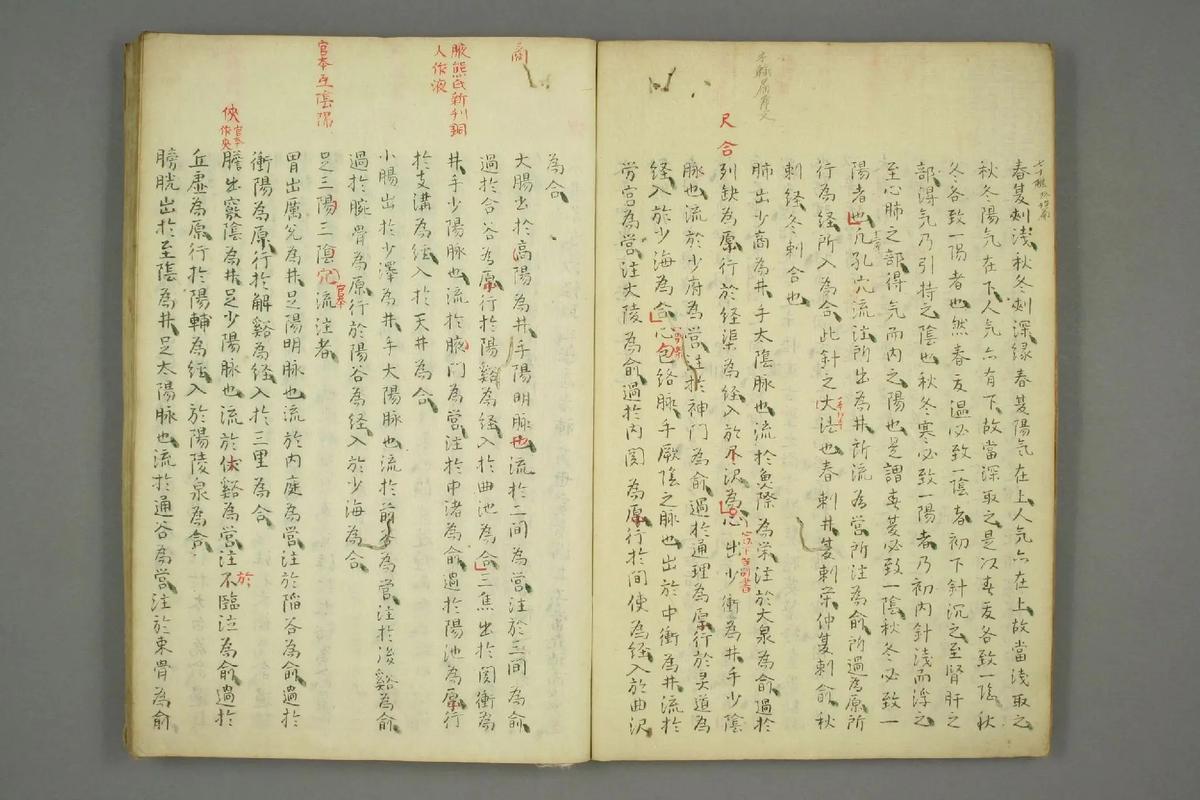 春夏刺浅秋冬刺深縁春夏陽気在上人気亦在上故當浅取之
秋冬陽気在下人気亦有下故當深取之是以春夏各致一陰秋
冬各致一陽者也然春夏温必致一陰者初下針沉之至腎肝之
部得気乃引持之陰也秋冬寒必致一陽者乃初内針浅而浮之
至心肺之部得気而内之陽也是謂春夏必致一陰秋冬必致一
陽者也凡孔穴流注所出為井所流為営所注為俞所過為原所
行為経所入為合此針之大法也春刺井夏刺栄仲夏刺俞秋
刺経冬刺合也
尺合
肺出少商為井手太陰脉也流於魚際為栄注於大泉為俞過於
列缺為原行於経渠為経入於尺沢為心出少衝為井手少陰
脉也流於少府為営注於神門為俞過於通理為原行於霊道為
経入於少海為合心包絡脉手厥陰之脉也出於中衝為井流於
労宮為営注大陵為俞過於内関為原行於間使為経入於曲沢
為合
商
大腸出於高陽為井手陽明脉也流於二間為営注於三間為俞
過於合谷為原行於陽谿為経入於曲池為合三焦出於関衝為
腋熊氏新刊銅
人作液
井手少陽脉也流於腋門為営注於中渚為俞過於陽池為原行
於支溝為経入於天井為合
小腸出於少澤為井手大陽脉也流於前谷為営注於後谿為俞
過於腕骨為原行於陽谷為経入於少海為合
官本至陰陽
足三陽三陰穴流注者
官本
胃出厲兌為井足陽明脉也流於内庭為営注於陥谷為俞過於
衝陽為原行於解谿為経入於三里為合
侠官本作夾
膽出竅陰為井足少陽脉也流於侠谿為営注不臨泣為俞過於
於
丘虚為原行於陽輔為経入於陽陵泉為合
膀胱出於至陰為井足太陽脉也流於通谷為営注於束骨為俞